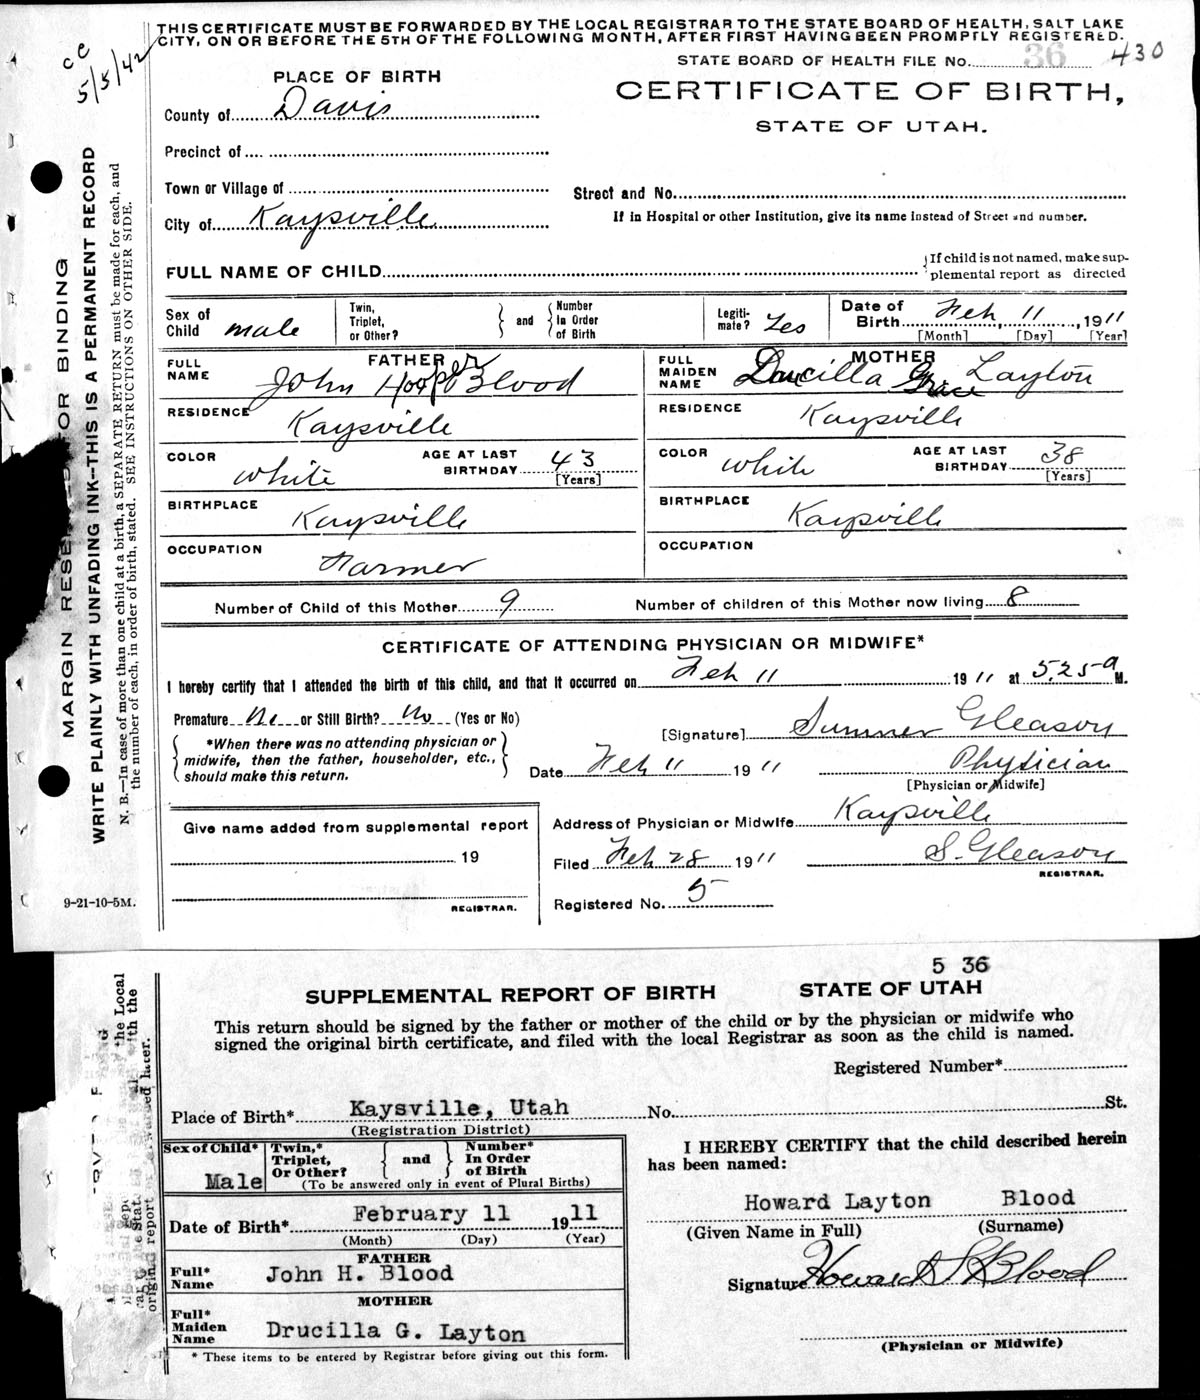 THIS CERTIFICATE MUST BE FORWARDED BY THE LOCAL REGISTRAR TO THE STATE BOARD OF HEALTH, SALT LAKE
CITY, ON OR BEFORE THE 5TH OF THE FOLLOWING MONTH, AFTER FIRST HAVING BEEN PROMPTLY REGISTERED.
cc
5/5/42
STATE BOARD OF HEALTH FILE No. 36 430
PLACE OF BIRTH
CERTIFICATE OF BIRTH,
STATE OF UTAH.
County of Davis
Precinct of
Town or Village of
Street and No.
City of Kaysville
If in Hospital or other Institution, give its name instead of Street and number.
FULL NAME OF CHILD
If child is not named, make sup-
plemental report as directed
Sex of Child male
Twin, Triplet, or Other?
and
Number In Order of Birth
Legiti-mate? Yes
Date of Birth Feb 11, 1911
[Month] [Day] [Year]
FATHER
FULL NAME John Hooper Blood
RESIDENCE Kaysville
COLOR white
AGE AT LAST BIRTHDAY 43
[Years]
BIRTHPLACE Kaysville
OCCUPATION Farmer
MOTHER
FULL MAIDEN NAME Drucilla Grace Layton
RESIDENCE Kaysville
COLOR white
AGE AT LAST BIRTHDAY 38
[Years]
BIRTHPLACE Kaysville
OCCUPATION
Number of Child of this Mother 9 Number of children of this Mother now living 8
CERTIFICATE OF ATTENDING PHYSICIAN OR MIDWIFE*
I hereby certify that I attended the birth of this child, and that it occurred on Feb 11 1911 at 5.25 a M.
Premature No or Still Birth? No (Yes or No)
*When there was no attending physician or
midwife, then the father, householder, etc.,
should make this return.
[Signature] Sumner Gleason
Date Feb 11 1911 Physician
[Physician or Midwife]
Give name added from supplemental report
19
REGISTRAR.
Address of Physician or Midwife Kaysville
Filed Feb 28 1911 S. Gleason
REGISTRAR.
Registered No. 5
MARGIN RESE FOR BINDING
WRITE PLAINLY WITH UNFADING INK—THIS IS A PERMANENT RECORD
N. B.—In case of more than one child at a birth, a SEPARATE RETURN must be made for each, and
the number of each, in order of birth, stated. SEE INSTRUCTIONS ON OTHER SIDE.
9-21-10-5M.
5 36
SUPPLEMENTAL REPORT OF BIRTH STATE OF UTAH
This return should be signed by the father or mother of the child or by the physician or midwife who
signed the original birth certificate, and filed with the local Registrar as soon as the child is named.
Registered Number*
Place of Birth* Kaysville, Utah No. St.
(Registration District)
Sex of Child* Male
Twin,* Triplet, Or Other?
and
Number* In Order of Birth
(To be answered only in event of Plural Births)
Date of Birth* February 11 1911
(Month) (Day) (Year)
FATHER
Full* Name John H. Blood
MOTHER
Full* Maiden Name Drucilla G. Layton
* These items to be entered by Registrar before giving out this form.
I HEREBY CERTIFY that the child described herein
has been named:
Howard Layton Blood
(Given Name in Full) (Surname)
Signature Howard L Blood
(Physician or Midwife)
the Local
with the
later.